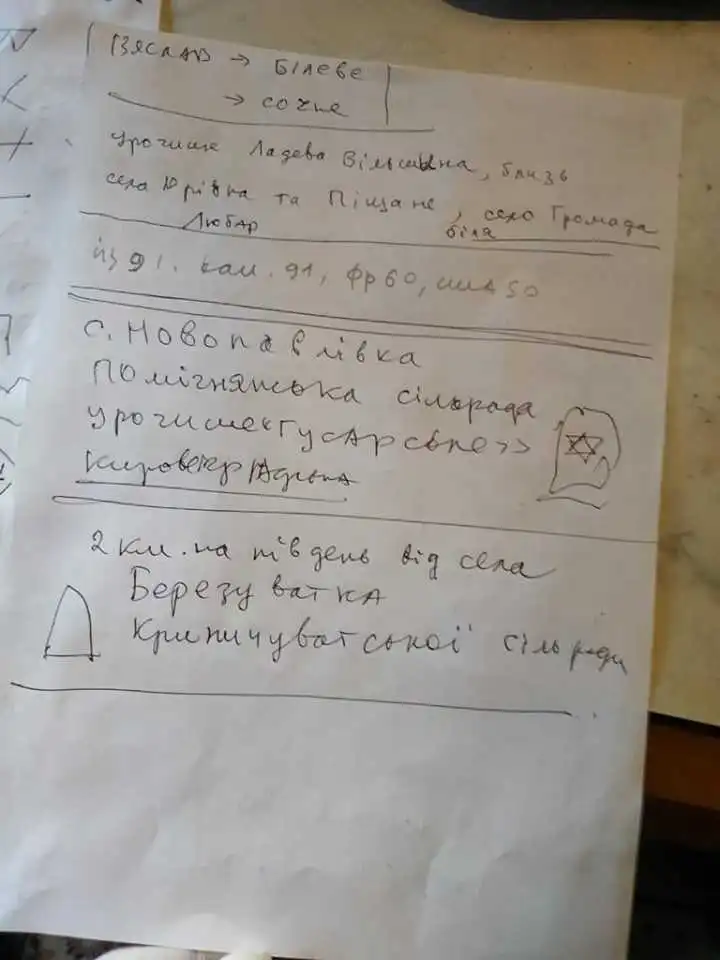 Ізяслав → Білеве
→ сочне
урочище Ладева Вільшина, близь
села Юрівка та Піщане, село Громада
Любар біля
с. Новопавлівка
Помічнянська сільрада
урочище «Гусарське»
Кировоград
2 км. на південь від села
Березуватка
Криничуватської сільради